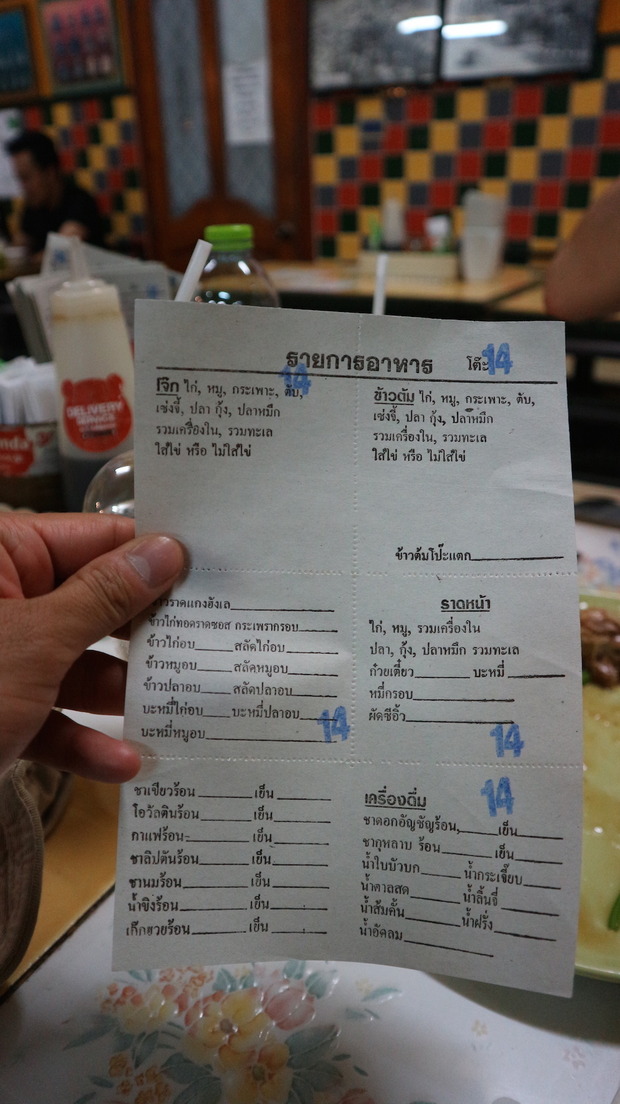 รายการอาหาร โต๊ะ 14
14
โจ๊ก ไก่, หมู, กระเพาะ, ตับ,
เซ่งจี้, ปลา กุ้ง, ปลาหมึก
รวมเครื่องใน, รวมทะเล
ใส่ไข่ หรือ ไม่ใส่ไข่
ข้าวต้ม ไก่, หมู, กระเพาะ, ตับ,
เซ่งจี้, ปลา กุ้ง, ปลาหมึก
รวมเครื่องใน, รวมทะเล
ใส่ไข่ หรือ ไม่ใส่ไข่
ข้าวต้มโป๊ะแตก
ราดแกงฮังเล
ข้าวไก่ทอดราดซอส กระเพรากรอบ
ข้าวไก่อบ สลัดไก่อบ
ข้าวหมูอบ สลัดหมูอบ
ข้าวปลาอบ สลัดปลาอบ
บะหมี่ไก่อบ บะหมี่ปลาอบ
บะหมี่หมูอบ 14
ราดหน้า
ไก่, หมู, รวมเครื่องใน
ปลา, กุ้ง, ปลาหมึก รวมทะเล
ก๋วยเตี๋ยว บะหมี่
หมี่กรอบ
ผัดซีอิ้ว
14
ชาเขียวร้อน เย็น
โอวัลตินร้อน เย็น
กาแฟร้อน เย็น
ชาลิปตันร้อน เย็น
ชานมร้อน เย็น
น้ำขิงร้อน เย็น
เก๊กฮวยร้อน เย็น
เครื่องดื่ม 14
ชาดอกอัญชัญร้อน, เย็น
ชากุหลาบ ร้อน เย็น
น้ำใบบัวบก น้ำกระเจี๊ยบ
น้ำตาลสด น้ำลิ้นจี่
น้ำส้มคั้น น้ำฝรั่ง
น้ำอัดลม
DELIVERY
SERVICE